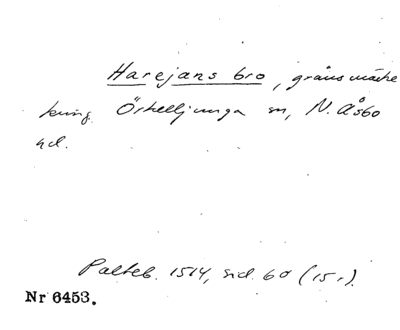 Harejans bro, gränsmärke
kring Örkelljunga sn, N. Åsbo
hd.
Palteb. 1514, sid. 60 (15r).
Nr 6453.